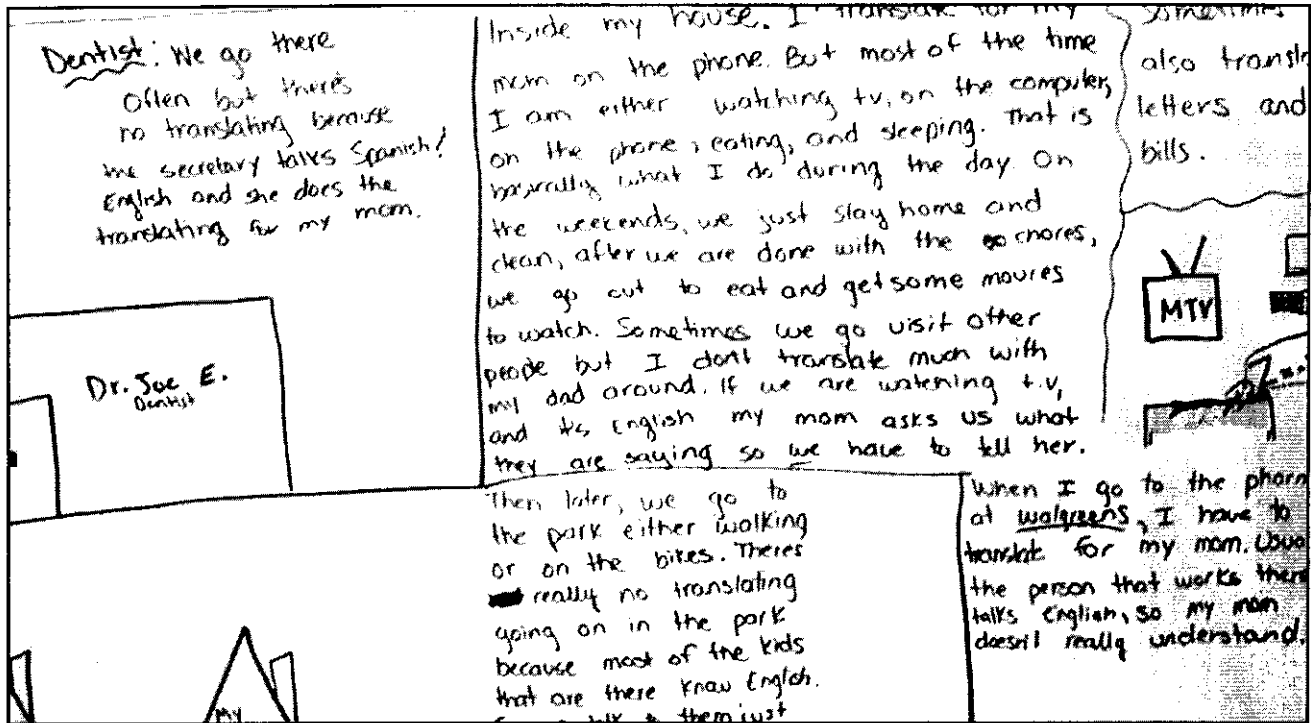 Dentist: We go there
often but there's
no translating because
the secretary talks Spanish/
English and she does the
translating for my mom.
Dr. Joe E.
Dentist
Inside my house. I translate for my
mom on the phone. But most of the time
I am either watching tv, on the computer,
on the phone, eating, and sleeping. That is
basically what I do during the day. On
the weekends, we just stay home and
clean, after we are done with the chores,
we go out to eat and get some movies
to watch. Sometimes we go visit other
people but I dont translate much with
my dad around. If we are watching t.v,
and its English my mom asks us what
they are saying so we have to tell her.
Sometimes
also transl
letters and
bills.
MTV
Then later, we go to
the park either walking
or on the bikes. Theres
really no translating
going on in the park
because most of the kids
that are there know English.
talk to them just
My
When I go to the pharm
at walgreens, I have to
translate for my mom. Usua
the person that works there
talks English, so my mom
doesn't really understand.